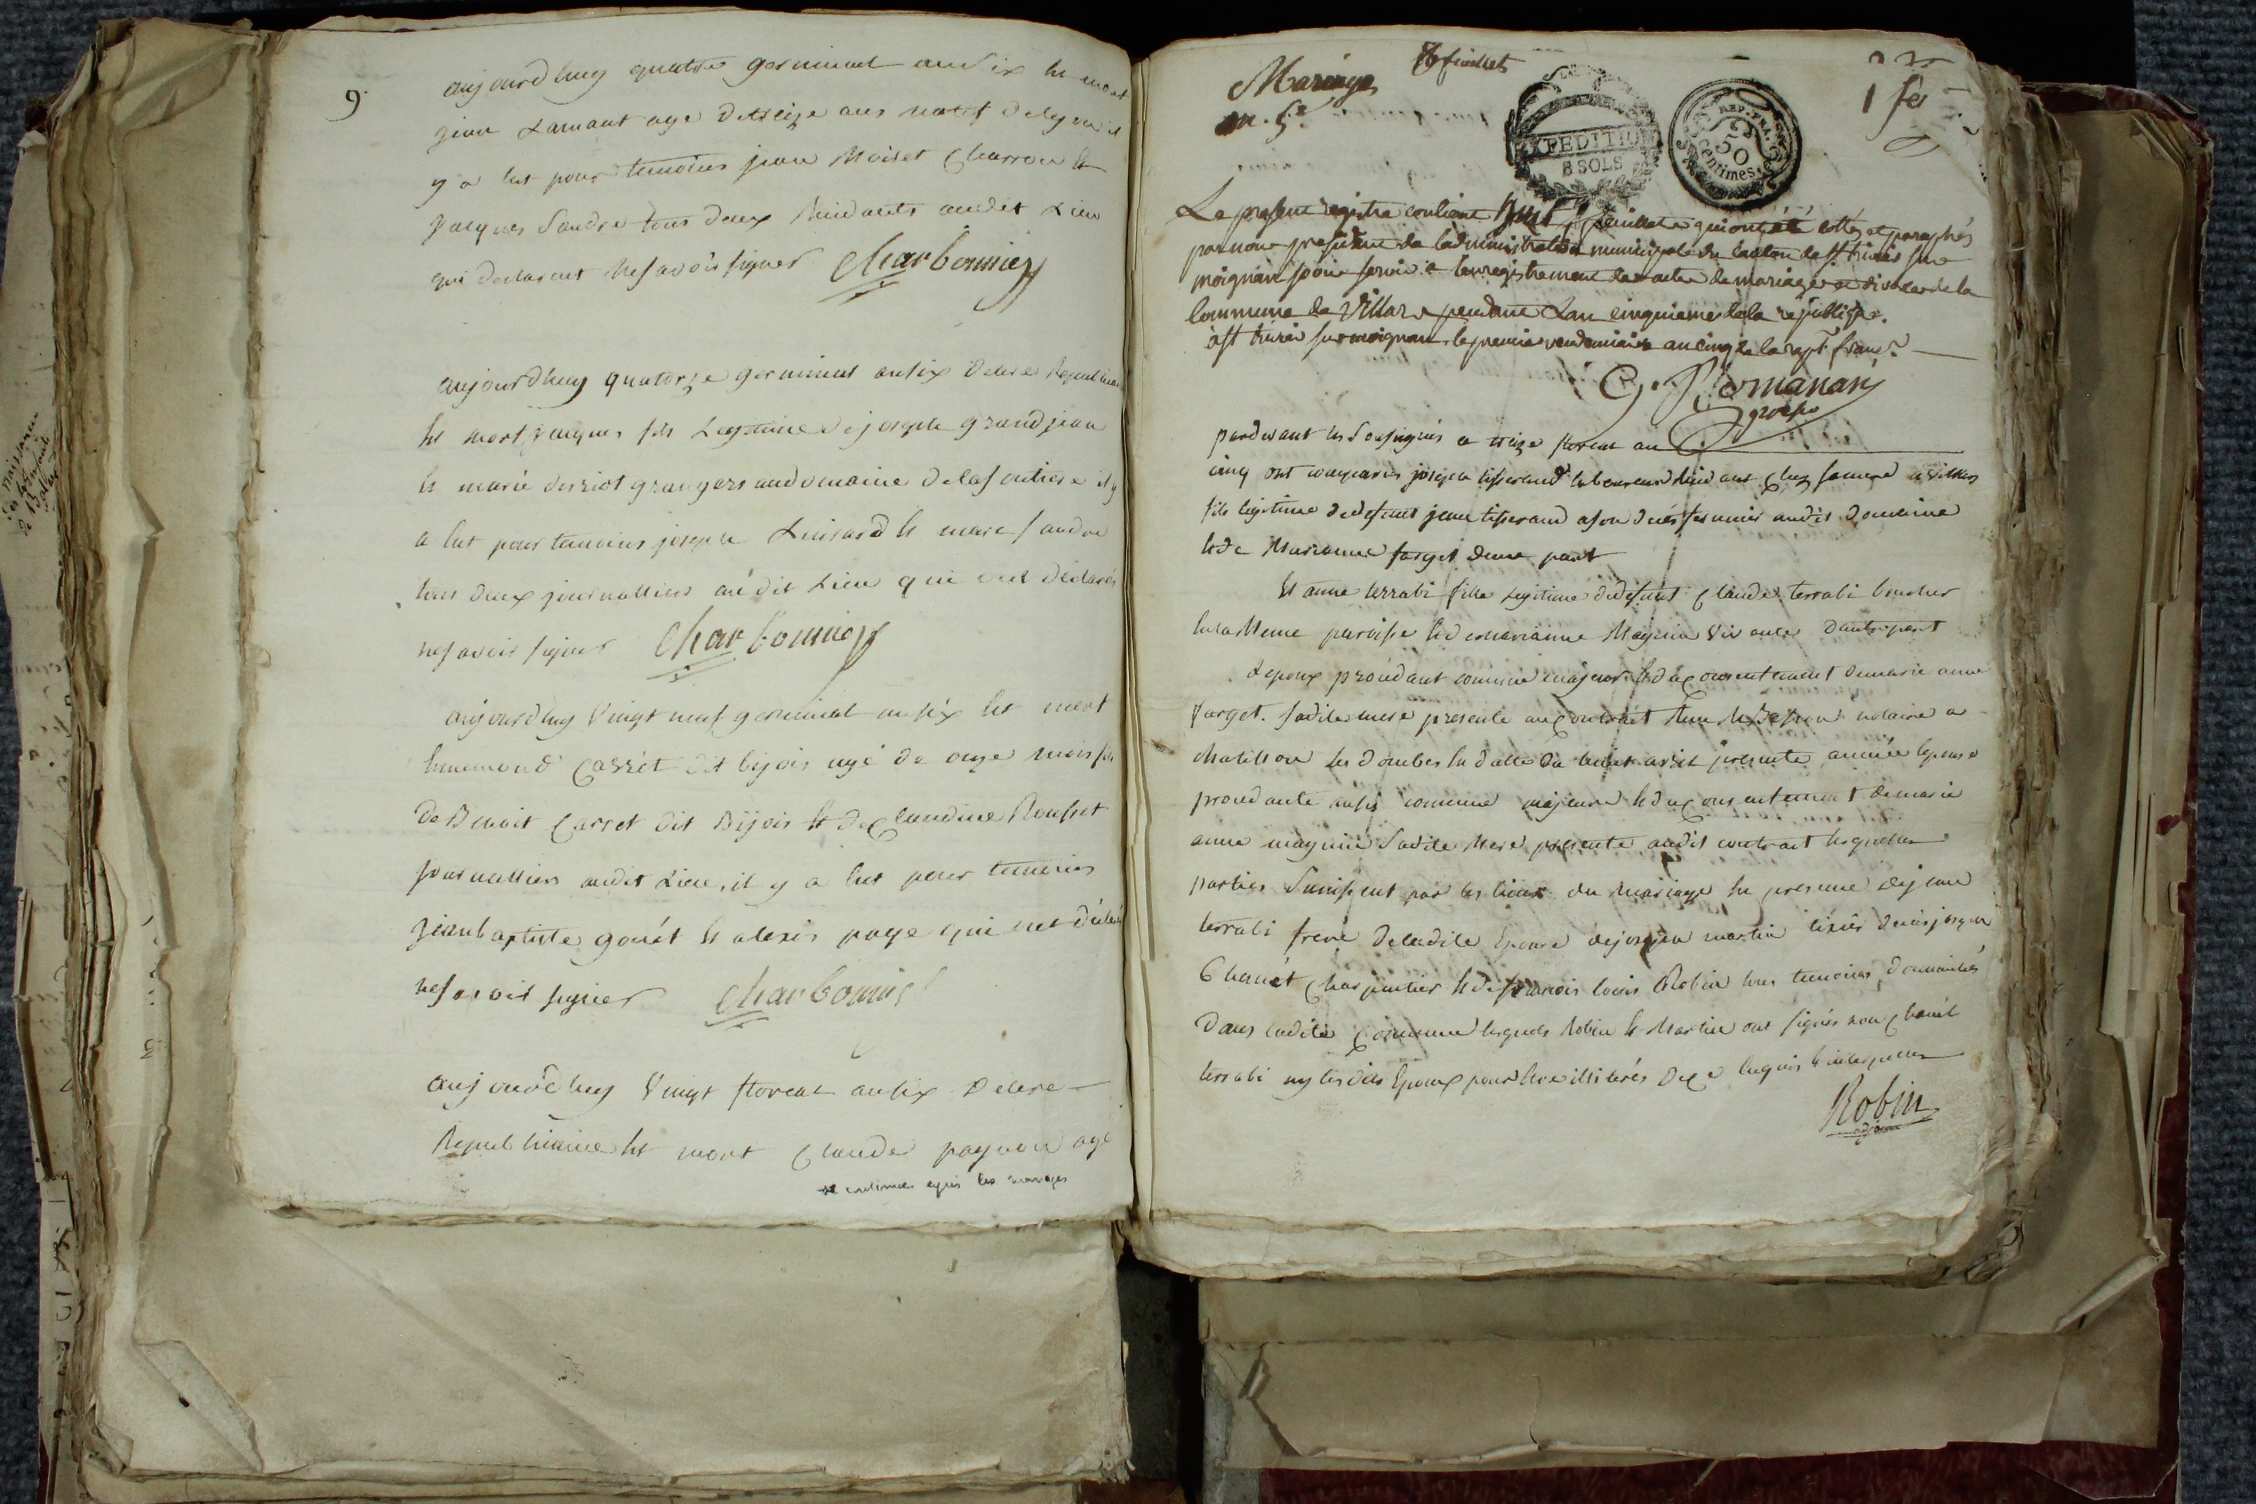 9.
aujourdhuy quatre germinal an Six est mort
jean Lamant age de treize ans natif de lyon il
y a eut pour temoins jean Moiset Charron et
jacques Sandre tous deux Residants audit Lieu
qui declarent ne savoir signer Charbonnier
aujourdhuy quatorze germinal an six de l'ere Republicaine
est mort jacques fils Legitime de joseph grandjean
et marie derriot grangers au domaine de la il y
a eut pour temoins joseph Luisard et marc Sandre
tous deux journalliers audit Lieu qui ont déclarés
ne savoir signer Charbonnier
aujourdhuy Vingt neuf germinal an six est mort
hunemond Carret dit bijois agé de onze mois fils
de Benoit Carret dit Bijois et de Claudine Rousset
journalliers audit Lieu, il y a eut pour temoins
jean baptiste gonét et alexis page qui ont déclaré
ne savoir signer Charbonnier
aujourdhuy Vingt floreal an six de l'ere
Republicaine est mort Claude pagnon agé
continué après les mariages
Mariages 8 feuillets
an. 5e
EXPEDITION
8 SOLS
REP. FRA.
50
centimes
1 fer
Le present registre contient huit feuillets qui ont été cottés et paraphés
par nous president de l'administration municipale du canton de St trivier sur
moignan pour servir a l'enregistrement des actes de mariages et divorces de la
Commune de Villars pendant L'an cinquieme de la république.
à St trivier sur moignan le premier vendemiaire an cinq de la rep. franc.
pardevant les Sousignés a treize floreal an
cinq ont comparus joseph tisserand laboureur Residant chez sa mere a Villars
fils legitime de defunt jean tisserand a son deces fermier audit domaine
et de Marianne farget d'une part
Et anne terrabi fille Legitime de defunt Claude terrabi boucher
en la Meme paroisse et de marianne Maynin Vivante d'autre part
L'epoux procedant comme majeur et du consentement de marie anne
farget. sadite mere presente au contrat Reçu notaire a
chatillon les dombes en datte du huit avril presente année l'epouse
procedante aussi comme majeure et du consentement de marie
anne maynin Sadite Mere presente audit contrat lesquelles
parties S'unissent par les liens du mariage en presence de jean
terrabi frere de ladite Epouse de joseph martin tixier de joseph
Chanét Charpentier et de francois louis Robin tous temoins domiciliés
dans ladite Commune lesquels Robin et Martin ont signés non Chanét
terrabi ny lesdits Epoux pour etre illiterés de ce enquis et interpellés
Robin
adjoint